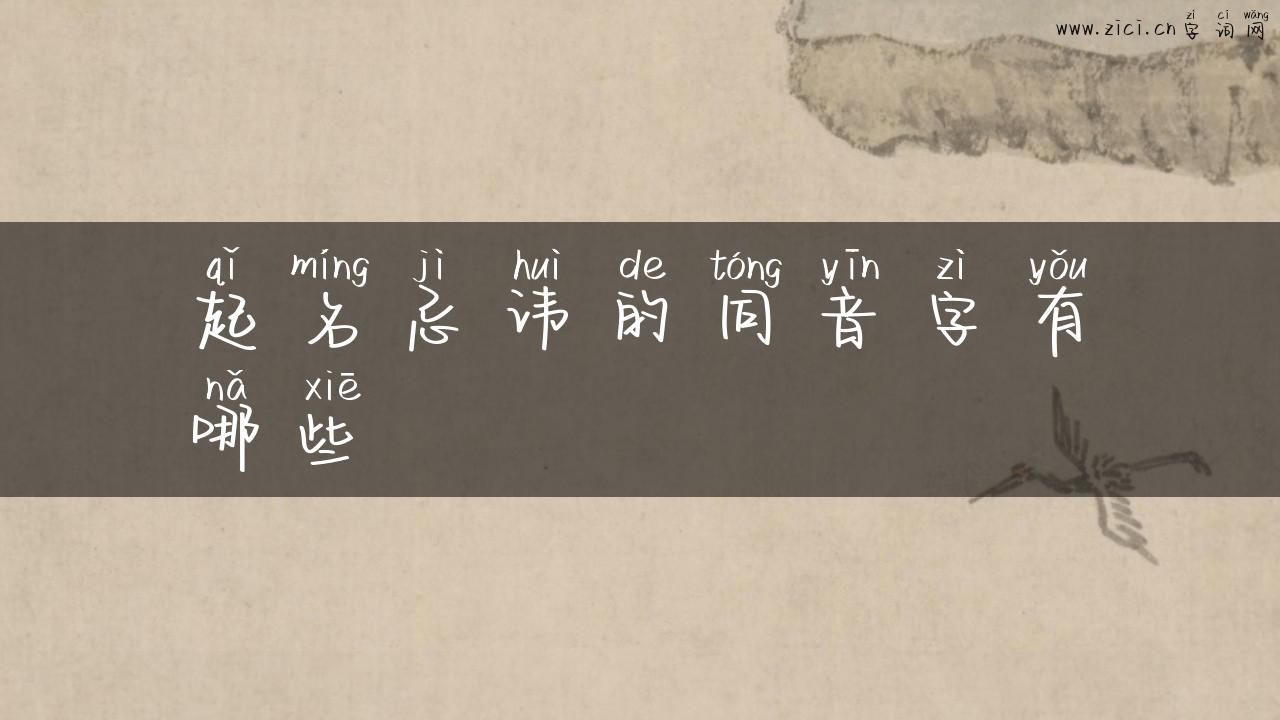 zì cí wǎng
www.zici.cn字词网
qǐ míng jì huì de tóng yīn zì yǒu
起名忌讳的同音字有
nǎ xiē
哪些